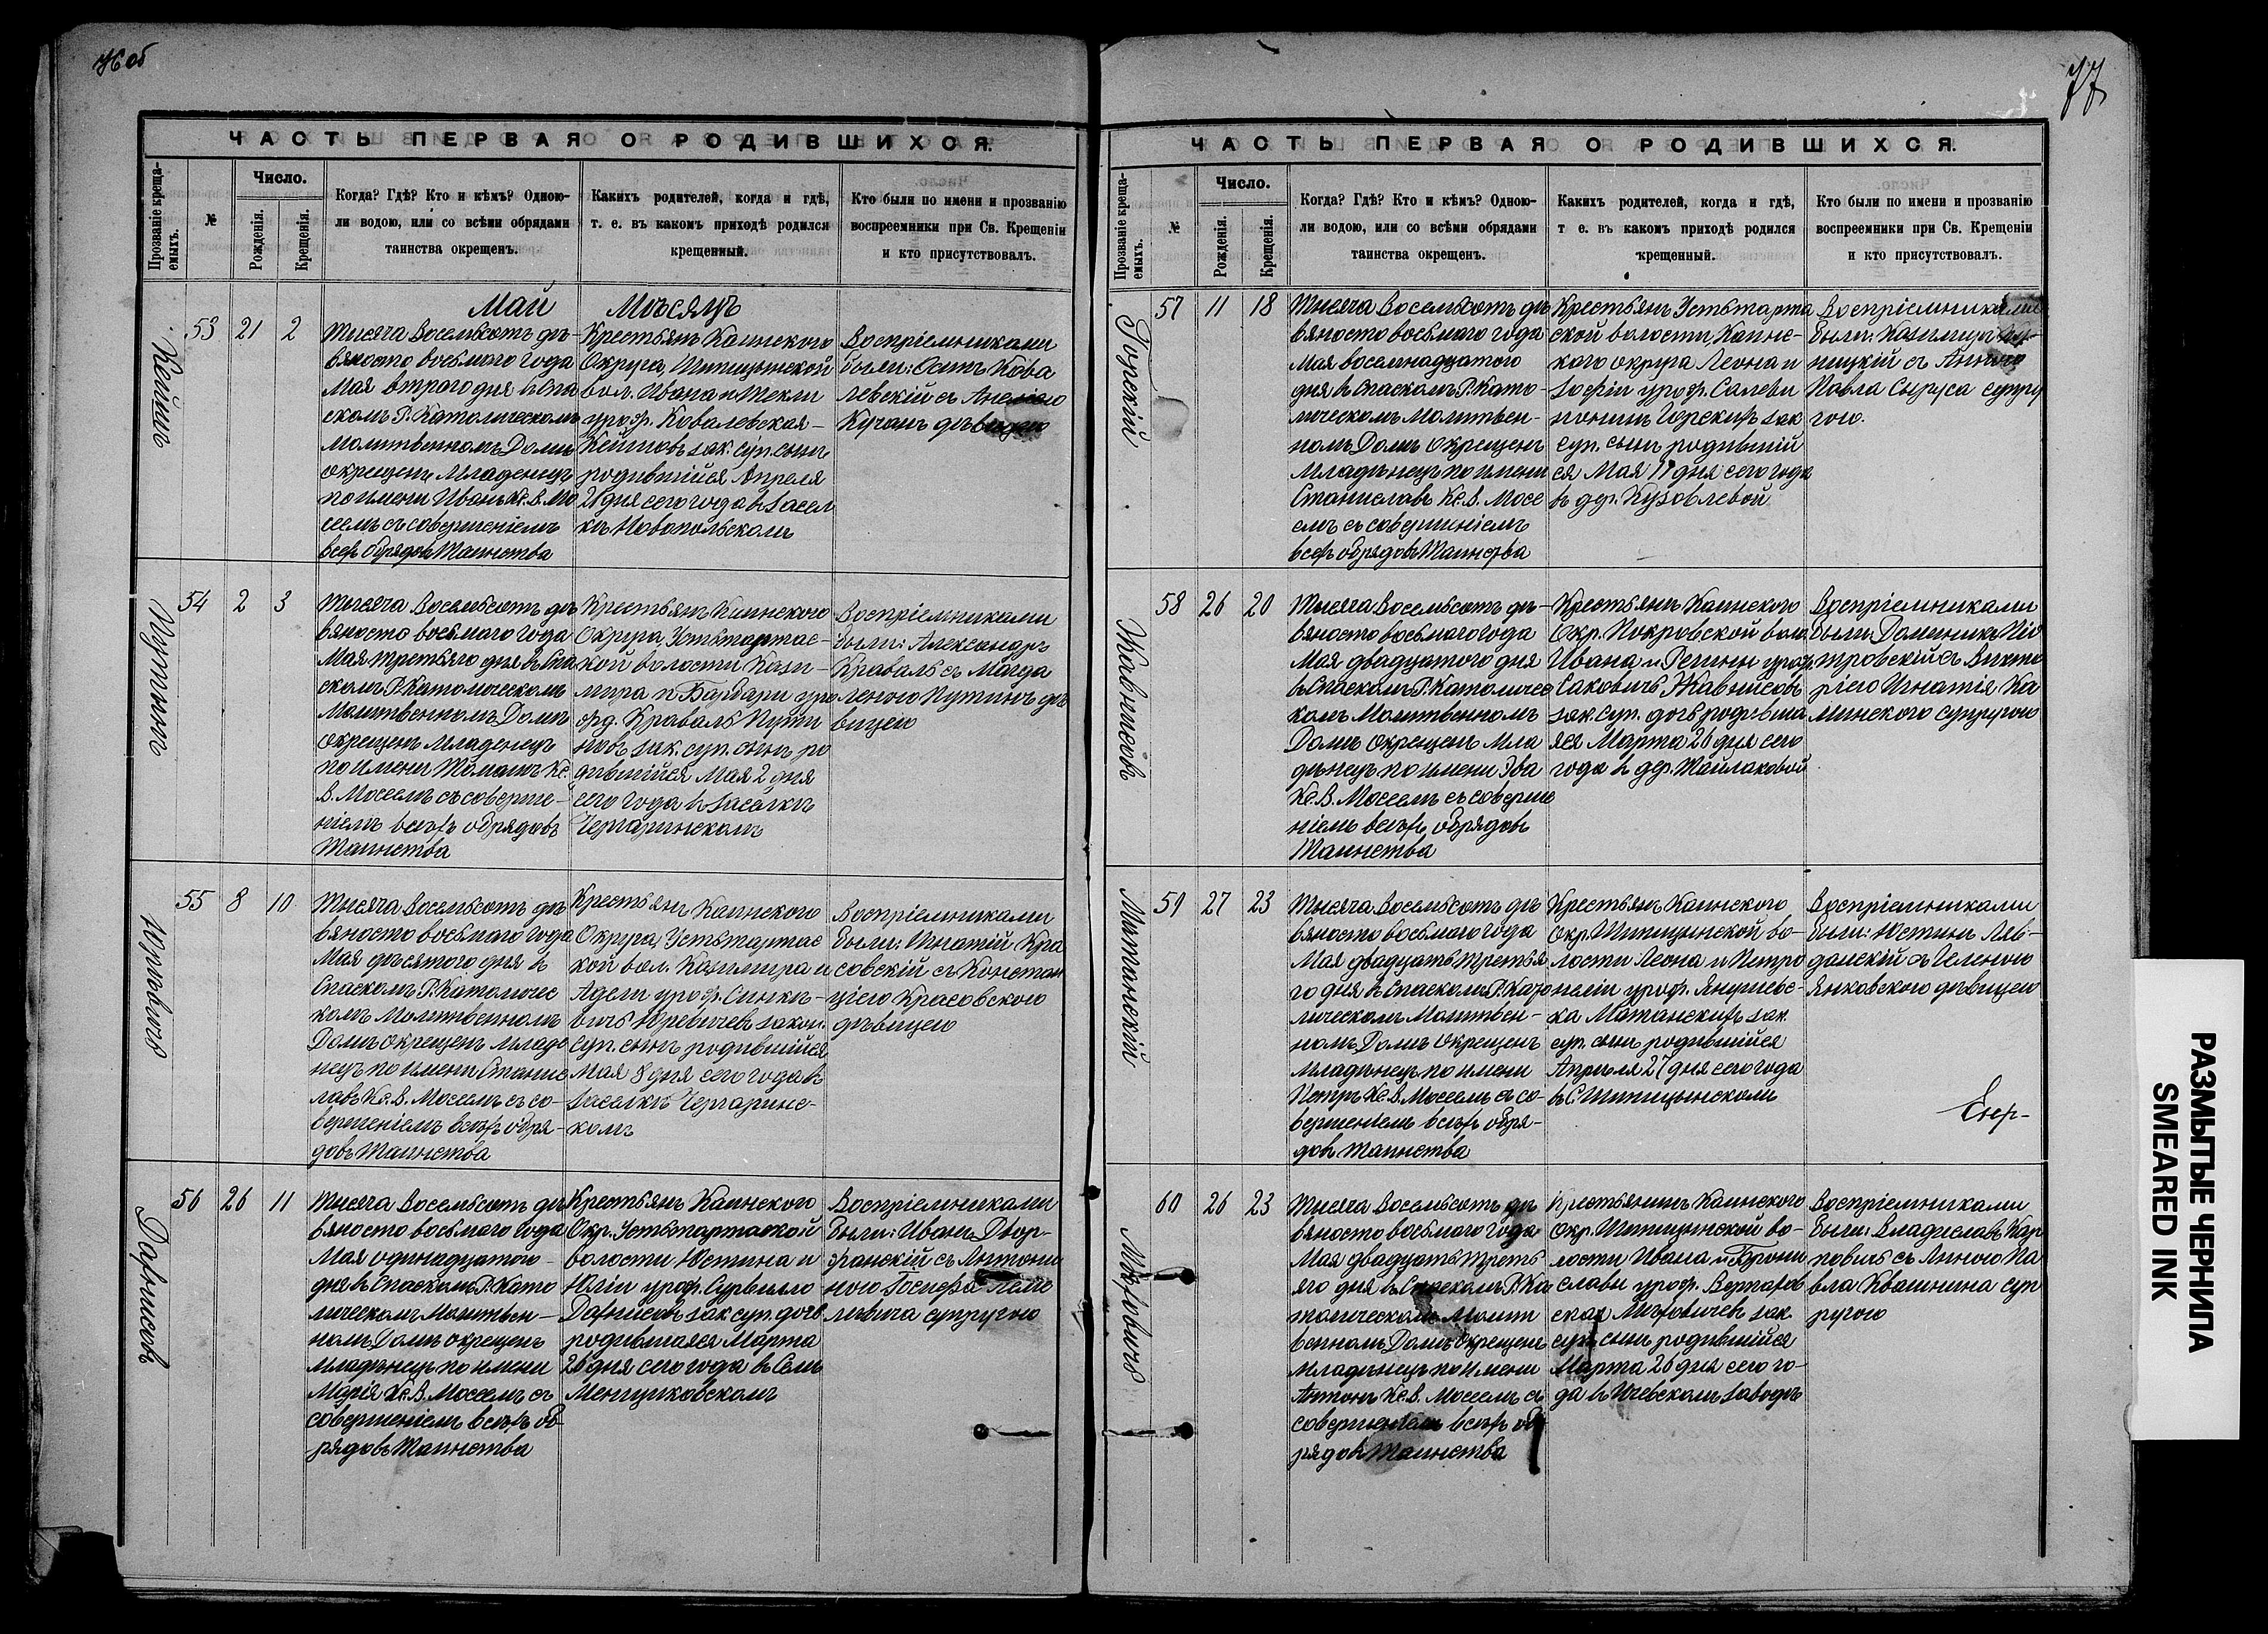 76 об
ЧАСТЬ ПЕРВАЯ О РОДИВШИХСЯ.
Прозваніе креща-
емыхъ.
№
Число.
Рожденія.
Крещенія.
Когда? Гдѣ? Кто и кѣмъ? Одною-
ли водою, или со всѣми обрядами
таинства окрещенъ.
Какихъ родителей, когда и гдѣ,
т. е. въ какомъ приходѣ родился
крещенный.
Кто были по имени и прозванію
воспреемники при Св. Крещеніи
и кто присутствовалъ.
Май Мѣсяцъ
Кейшъ
53 21 2
Тысяча Восемьсотъ де-
вяносто восьмаго года
Мая втораго дня в Спа
скомъ Р. Католическомъ
Молитвенномъ Домѣ
окрещенъ Младенецъ
по имени Иванъ Кс. В. Мо
сеемъ съ совершеніемъ
всѣхъ обрядовъ Таинства
Крестьянъ Каинского
Округа, Шипицынской
вол. Ивана и Текли
урож. Ковалевская-
Кейшовъ зак. суп. сынъ
родившійся Апреля
21 дня сего года в засел
кѣ Новопольскомъ
Воспріемниками
были: Осипъ Кова
левскій съ Анелею
Кучанъ дѣвицею
Путинъ
54 2 3
Тысяча Восемьсотъ де
вяносто восьмаго года
Мая третьяго дня в Спа
скомъ Р. Католическомъ
Молитвенномъ Домѣ
окрещенъ Младенецъ
по имени Томашъ Кс.
В. Мосеемъ съ соверше-
ніемъ всѣхъ обрядовъ
Таинства
Крестьянъ Каинского
Округа, Устьтартас-
кой волости Кази-
мира и Барбары уро
жд. Краваль Пути
новъ зак. суп. сынъ ро
дившійся Мая 2 дня
сего года в заселкѣ
Чергаринскомъ
Воспріемниками
были: Александръ
Краваль съ Магда
леною Путинъ дѣ
вицею
Юрѣвичъ
55 8 10
Тысяча Восемьсотъ де
вяносто восьмаго года
Мая десятого дня в
Спаскомъ Р. Католичес
комъ Молитвенномъ
Домѣ окрещенъ младе
нецъ по имени Станис
лавъ Кс. В. Мосеемъ съ со-
вершеніемъ всѣхъ обря-
довъ Таинства
Крестьянъ Каинского
Округа, Устьтартас
кой вол. Казимира и
Адели урож. Синке-
вичъ Юревичевъ закон.
суп. сынъ родившійся
Мая 8 дня сего года в
заселкѣ Чергаринс-
комъ
Воспріемниками
были: Игнатій Кра
совскій съ Констан
ціею Красовскою
дѣвицею
Дагнисовъ
56 26 11
Тысяча Восемьсотъ де
вяносто восьмаго года
Мая одинадцатою
дня в Спаскомъ Р. Като
лическомъ Молитвен-
номъ Домѣ окрещенъ
младенецъ по имени
Марія Кс. В. Мосеемъ съ
совершеніемъ всѣхъ об
рядовъ Таинства
Крестьянъ Каинского
Окр. Устьтартаской
волости Юстина и
Юліи урож. Сурвилло
Дагнисовъ зак суп. дочь
родившаяся Марта
26 дня сего года в Селѣ
Меншиковскомъ
Воспріемниками
были: Иванъ Двор-
жанскій съ Антони
ною Іосифа
супругою
77
ЧАСТЬ ПЕРВАЯ О РОДИВШИХСЯ.
Прозваніе креща-
емыхъ.
№
Число.
Рожденія.
Крещенія.
Когда? Гдѣ? Кто и кѣмъ? Одною-
ли водою, или со всѣми обрядами
таинства окрещенъ.
Какихъ родителей, когда и гдѣ,
т е. въ какомъ приходѣ родился
крещенный.
Кто были по имени и прозванію
воспреемники при Св. Крещеніи
и кто присутствовалъ.
Горскій
57 11 18
Тысяча Восемьсотъ де
вяносто восьмаго года
Мая восемнадцатого
дня в Спаскомъ Р. Като-
лическомъ Молитвен-
номъ Домѣ окрещенъ
Младенецъ по имени
Станиславъ Кс. В. Мосе
емъ съ совершеніемъ
всѣхъ обрядовъ Таинства
Крестьянъ Устьтарта
ской волости Каинс-
кого округа Леона и
Зофіи урож.
Горскихъ зак
суп. сынъ родившій
ся Мая 11 дня сего года
в дер. Кузовлевой
Воспріемниками
были:
ницкій съ Анною
Павла Сыруса супру
гою.
Жавнисовъ
58 26 20
Тысяча Восемьсотъ де-
вяносто восьмаго года
Мая двадцатого дня
в Спаскомъ Р. Католичес
комъ Молитвенномъ
Домѣ окрещенъ мла
денецъ по имени Эва
Кс. В. Мосеемъ съ соверше
ніемъ всѣхъ обрядовъ
Таинства
Крестьянъ Каинского
Окр. Покровской воло
Ивана и Регины урож.
Саковичъ Жавнисовъ
зак. суп. дочь родивша
яся Марта 26 дня сего
года в дер. Тайлаковой
Воспріемниками
были: Доминикъ Піо
тровскій съ Викто
ріею Игнатія Ка
минского супругою
Матанскій
59 27 23
Тысяча Восемьсотъ де
вяносто восьмаго года
Мая двадцать третья
го дня в Спаскомъ Р. Като
лическомъ Молитвен-
номъ Домѣ окрещенъ
младенецъ по имени
Петръ Кс. В. Мосеемъ съ со-
вершеніемъ всѣхъ обря-
довъ Таинства
Крестьянъ Каинского
Окр. Шипицынской во-
лости Леона и Петро
неліи урож. Янушевс-
ка Матанскихъ зак.
суп. сынъ родившійся
Апреля 27 дня сего года
в С. Шипицынскомъ
Воспріемниками
были: Юстинъ Ляв-
данскій съ Геленою
Янковскою дѣвицею
60 26 23
Тысяча Восемьсотъ де
вяносто восьмаго года
Мая двадцать треть
яго дня в Спаскомъ Р. Ка
толическомъ Молит
венномъ Домѣ Окрещенъ
младенецъ по имени
Антонъ Кс. В. Мосеемъ съ
совершеніемъ всѣхъ об
рядовъ Таинства
Крестьянинъ Каинского
Окр. Шипицынской во-
лости Ивана и Брони
славы урож.
зак.
суп. сынъ родившійся
Марта 26 дня сего го-
да в Ичевскомъ заводѣ
Воспріемниками
были: Владиславъ Кар
повичъ съ Анною Па
вла Квашнина суп
ругою
РАЗМЫТЫЕ ЧЕРНИЛА
SMEARED INK